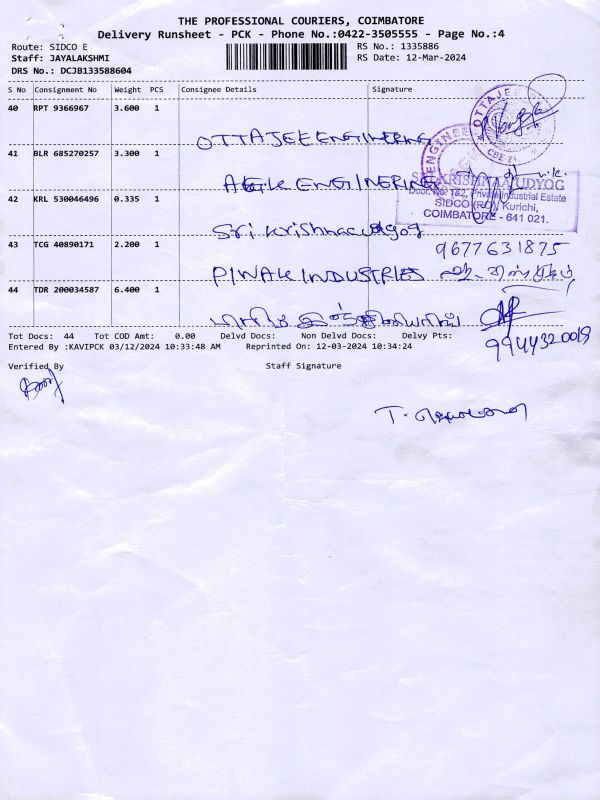 THE PROFESSIONAL COURIERS, COIMBATORE
Delivery Runsheet - PCK - Phone No.:0422-3505555 - Page No.:4
Route: SIDCO E
RS No.: 1335886
Staff: JAYALAKSHMI
RS Date: 12-Mar-2024
DRS No.: DCJB133588604
S No Consignment No Weight PCS Consignee Details Signature
40 RPT 9366967 3.600 1
OTTAJEE ENGINEERING
OTTAJEE
CBE-21
41 BLR 685270257 3.300 1
ENGINEER
ENGINEERING
SRI KRISHNAA UDYOG
Door. No: 182, Private Industrial Estate
42 KRL 530046496 0.335 1
SIDCO (PO), Kurichi,
COIMBATORE - 641 021.
Sri Krishnaa udyog
43 TCG 40890171 2.200 1
9677631875
PINAK INDUSTRIES
44 TDR 200034587 6.400 1
9944320019
Tot Docs: 44 Tot COD Amt: 0.00 Delvd Docs: Non Delvd Docs: Delvy Pts:
Entered By :KAVIPCK 03/12/2024 10:33:48 AM Reprinted On: 12-03-2024 10:34:24
Verified By Staff Signature